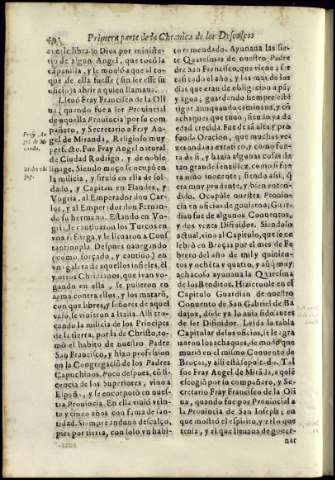 Primera parte de la Chronica de los Descalços
tar, le librasse Dios por ministe-
rio de algun Angel, que tocó la
campanilla, y le mostrò que al to-
que de ella fuesse (sin ser esse su
officio) a abrir a quien llamaua.
Lleuó Fray Francisco de la Oli
ua, quando fue a ser Prouincial
de aquella Prouincia por su com
pañero, y Secretario a Fray An-
gel de Miranda, Religioso muy
perfecto. Fue Fray Angel natural
de Ciudad Rodrigo, y de noble
linage. Siendo moço se ocupó en
la milicia, y siruió en ella de sol-
dado, y Capitan en Flandes, y
Vngria, al Emperador don Car-
los, y al Emperador don Fernan-
do su hermano. Estando en Vn-
gria, le cautiuaron los Turcos en
vna refriega, y le lleuaron a Cons-
tantinopla. Despues nauegando
(como forçado, y cautiuo) en
vna galera de aquellos infieles, él,
y otros Christianos, que iuan vo-
gando en ella, se pusieron en
arma contra ellos, y los mataró,
con que libres, y señores de aquel
baxel, se vinieron a Italia. Alli tro-
cando la milicia de los Principes
de la tierra, por la de Christo, to-
mó el habito de nuestro Padre
San Francisco, y hizo profession
en la Congregació de los Padres
Capuchinos. Poco despues, có li-
cencia de los Superiores, vino a
España, y se encorporò en nues-
tra Prouincia. En ella viuió vein-
te y cinco años con fama de san-
tidad. Siempre anduuo descalço,
pies por tierra, con solo vn habi-
Fray An-
gel de Mi
randa.
to remendado. Ayunaua las sie-
te Quaresmas de nuestro Padre
San Francisco, que tienen casi
todo el año, y los mas de los
dias que eran de obligacion a pan y
agua; guardando siempre este ri-
gor aunque caminando, y có
achaques que tuuo, siendo ya de
edad crecida. Fue de assidua y pro-
funda Oracion, que muchas ve-
zes andaua estatico, y como fue-
ra de si, y hazia algunas cosas de
tan grande sencillez, como si fue-
ra niño inocente; siendo assi, que
era muy prudente, y bien enten-
dido. Ocupóle nuestra Prouin-
cia en oficios de gouierno, Guar-
dian fue de algunos Conuentos,
y dos vezes Difinidor. Siendolo
actual, vino al Capitulo, que se ce
lebró en Broças por el mes de Fe
brero del año de mil y quinien-
tos y ochenta y quatro, y aunque muy
achacoso ayunaua la Quaresma
de los Benditos. Hizieronle en el
Capitulo Guardian de nuestro
Conuento de San Gabriel de Ba
dajoz, dóde ya lo auia sido antes
de ser Difinidor. Leida la tabla
Capitular de los oficios, se le agra
uaron los achaques, de modo que
murió en el mismo Conuento de
Broças, y alli está sepultado. Tal
fue Fray Angel de Miráda, a quié
escogió por su compañero, y Se-
cretario Fray Francisco de la Oli
ua, quando fue por Prouincial a
la Prouincia de San Ioseph; en
que mostró el espiritu, y zelo que
tenia, y el que lleuaua de gouer-
nar